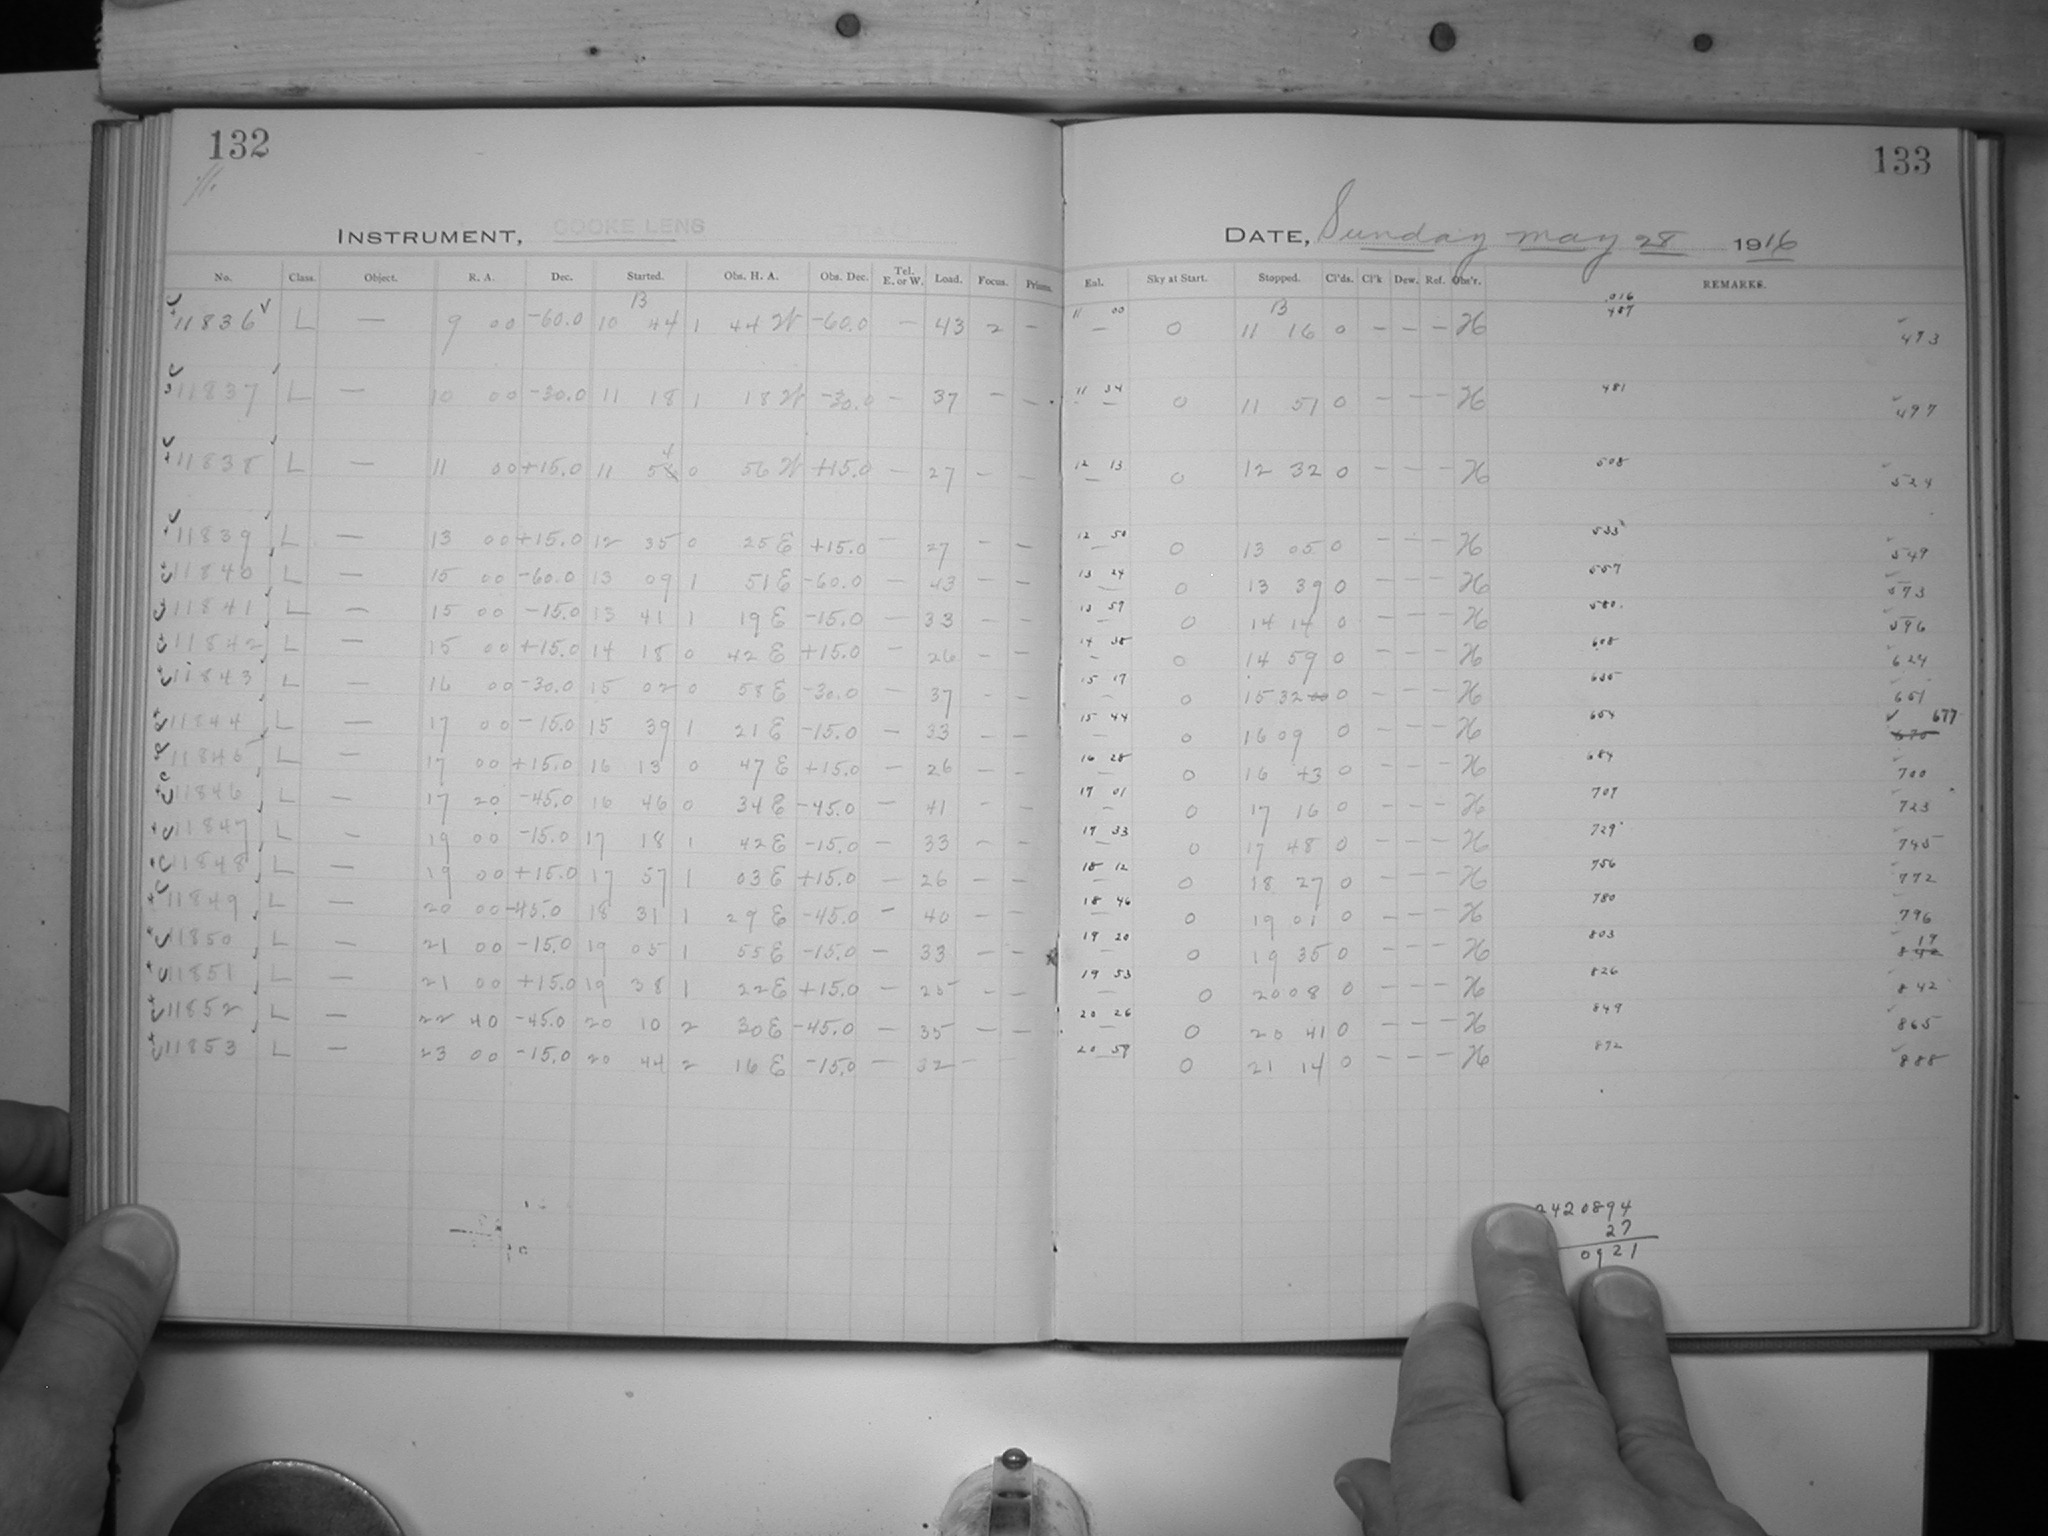 132
133
INSTRUMENT, COOKE LENS
DATE, Sunday May 28 1916
No. Class. Object. R. A. Dec. Started. Obs. H. A. Obs. Dec. Tel. E. or W. Load. Focus. Prisms. Eal. Sky at Start. Stopped. Cl'ds. Cl'k Dew. Ref. Obs'r. REMARKS.
B 11 00 B .016
11836 L — 9 00 -60.0 10 44 1 44 W -60.0 — 43 2 — — 0 11 16 0 — — — H 457 473
11837 L — 10 00 -30.0 11 18 1 18 W -30.0 — 37 — — 11 34 0 11 51 0 — — — H 481 497
11838 L — 11 00 +15.0 11 54 0 56 W +15.0 — 27 — — 12 13 0 12 32 0 — — — H 508 524
11839 L — 13 00 +15.0 12 35 0 25 E +15.0 — 27 — — 12 50 0 13 05 0 — — — H 533 549
11840 L — 15 00 -60.0 13 09 1 51 E -60.0 — 43 — — 13 24 0 13 39 0 — — — H 557 573
11841 L — 15 00 -15.0 13 41 1 19 E -15.0 — 33 — — 13 59 0 14 14 0 — — — H 580 596
11842 L — 15 00 +15.0 14 18 0 42 E +15.0 — 26 — — 14 38 0 14 59 0 — — — H 608 624
11843 L — 16 00 -30.0 15 02 0 58 E -30.0 — 37 — — 15 17 0 15 32 0 — — — H 635 651
11844 L — 17 00 -15.0 15 39 1 21 E -15.0 — 33 — — 15 44 0 16 09 0 — — — H 654 670 677
11845 L — 17 00 +15.0 16 13 0 47 E +15.0 — 26 — — 16 28 0 16 43 0 — — — H 684 700
11846 L — 17 20 -45.0 16 46 0 34 E -45.0 — 41 — — 17 01 0 17 16 0 — — — H 707 723
11847 L — 19 00 -15.0 17 18 1 42 E -15.0 — 33 — — 17 33 0 17 48 0 — — — H 729 745
11848 L — 19 00 +15.0 17 57 1 03 E +15.0 — 26 — — 18 12 0 18 27 0 — — — H 756 772
11849 L — 20 00 -45.0 18 31 1 29 E -45.0 — 40 — — 18 46 0 19 01 0 — — — H 780 796
11850 L — 21 00 -15.0 19 05 1 55 E -15.0 — 33 — — 19 20 0 19 35 0 — — — H 803 842 19
11851 L — 21 00 +15.0 19 38 1 22 E +15.0 — 25 — — 19 53 0 20 08 0 — — — H 826 842
11852 L — 22 40 -45.0 20 10 2 30 E -45.0 — 35 — — 20 26 0 20 41 0 — — — H 849 865
11853 L — 23 00 -15.0 20 44 2 16 E -15.0 — 32 — — 20 59 0 21 14 0 — — — H 872 888
2420894
27
0921